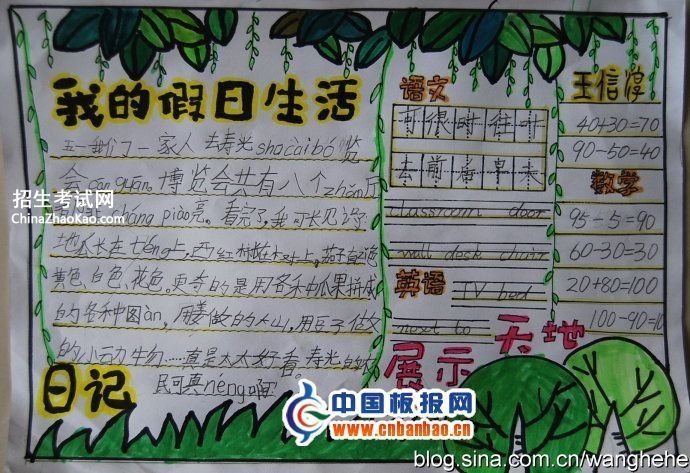 我的假日生活
五一我们一家人去寿光shūcàibó览
会 博览会共有八个zhǎn厅
piào亮。看完了,我可长见识了
地瓜长在téng上,西红柿长在 上,茄子有
黄色、白色、花色。更奇的是用各种瓜果拼成
的各种图àn,用姜做的大山,用豆子做
的小动物……真是太太好看。寿光的农
民可真néng啊
日记
招生考试网
ChinaZhaoKao.com
语文
可 很 时 往 叶
去 前 看 早 来
classroom door
wall desk chair
英语
TV bed
next to
展示天地
王信淳
40+30=70
90-50=40
数学
95-5=90
60-30=30
20+80=100
100-90=10
中国板报网
www.cnbanbao.cn
blog.sina.com.cn/wanghehe